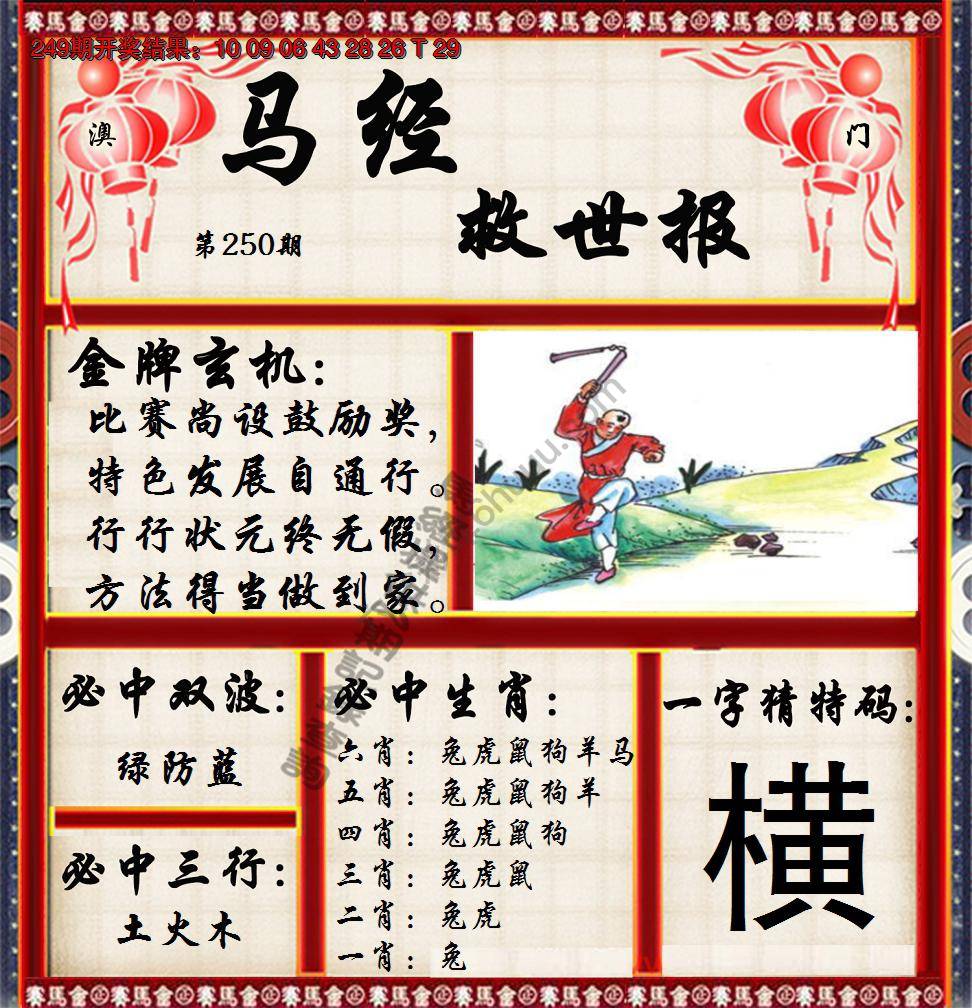 249期开奖结果：10 09 06 43 28 26 T 29
澳
门
马经
救世报
第250期
金牌玄机：
比赛尚设鼓励奖，
特色发展自通行。
行行状元终无假，
方法得当做到家。
必中双波：
绿防蓝
必中三行：
土火木
必中生肖：
六肖：兔虎鼠狗羊马
五肖：兔虎鼠狗羊
四肖：兔虎鼠狗
三肖：兔虎鼠
二肖：兔虎
一肖：兔
一字猜特码：
横